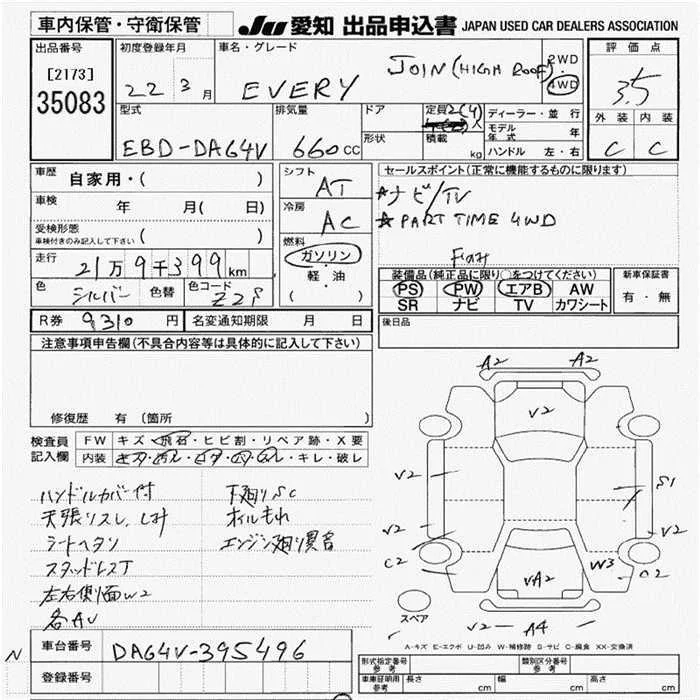 車内保管・守衛保管 JU 愛知 出品申込書 JAPAN USED CAR DEALERS ASSOCIATION
出品番号 初度登録年月 車名・グレード 評価点
[2173] 35083 22 3月 EVERY JOIN (HIGH ROOF) 2WD・4WD 3.5
型式 排気量 ドア 定員 2(4)人 ディーラー・並行 外装 内装
EBD-DA64V 660CC 形状 積載 kg モデル年式 年 C C
ハンドル 左・右
車歴 自家用・( ) シフト AT セールスポイント(正常に機能するものに限ります)
車検 年 月( 日) 冷房 AC ☆ナビ/TV
受検形態 ( ) ☆PART TIME 4WD
車検付きのみ記入して下さい
走行 21万9千399km 燃料 ガソリン・軽・油 ( )
装備品(純正品に限り○をつけてください) 新車保証書
色 シルバー 色替 色コード PS PW エアB AW 有・無
SR ナビ TV カワシート
R券 9310円 名変通知期限 月 日 後日品
注意事項申告欄(不具合内容等は具体的に記入して下さい)
修復歴 有 〔箇所
検査員記入欄 FW キズ・飛石・ヒビ割・リペア跡・X要
内装 ・キレ・破レ
ハンドルカバー付 下廻りSC
天張リスレ、しみ オイルもれ
シートヘタリ エンジン廻り異音
スタッドレスT
左右側面W2
各AU
A2 A2
V2
V2 S1
V2 V2
C2 W3 C2
VA2
スペア
V2 A4
A-キズ E-エクボ U-凹み W-補修跡 S-サビ C-腐食 XX-交換済
N 車台番号 DA64V-395496
登録番号
形式指定番号 参考 類別区分番号 参考
車庫証明用 参考 長さ cm 幅 cm 高さ cm